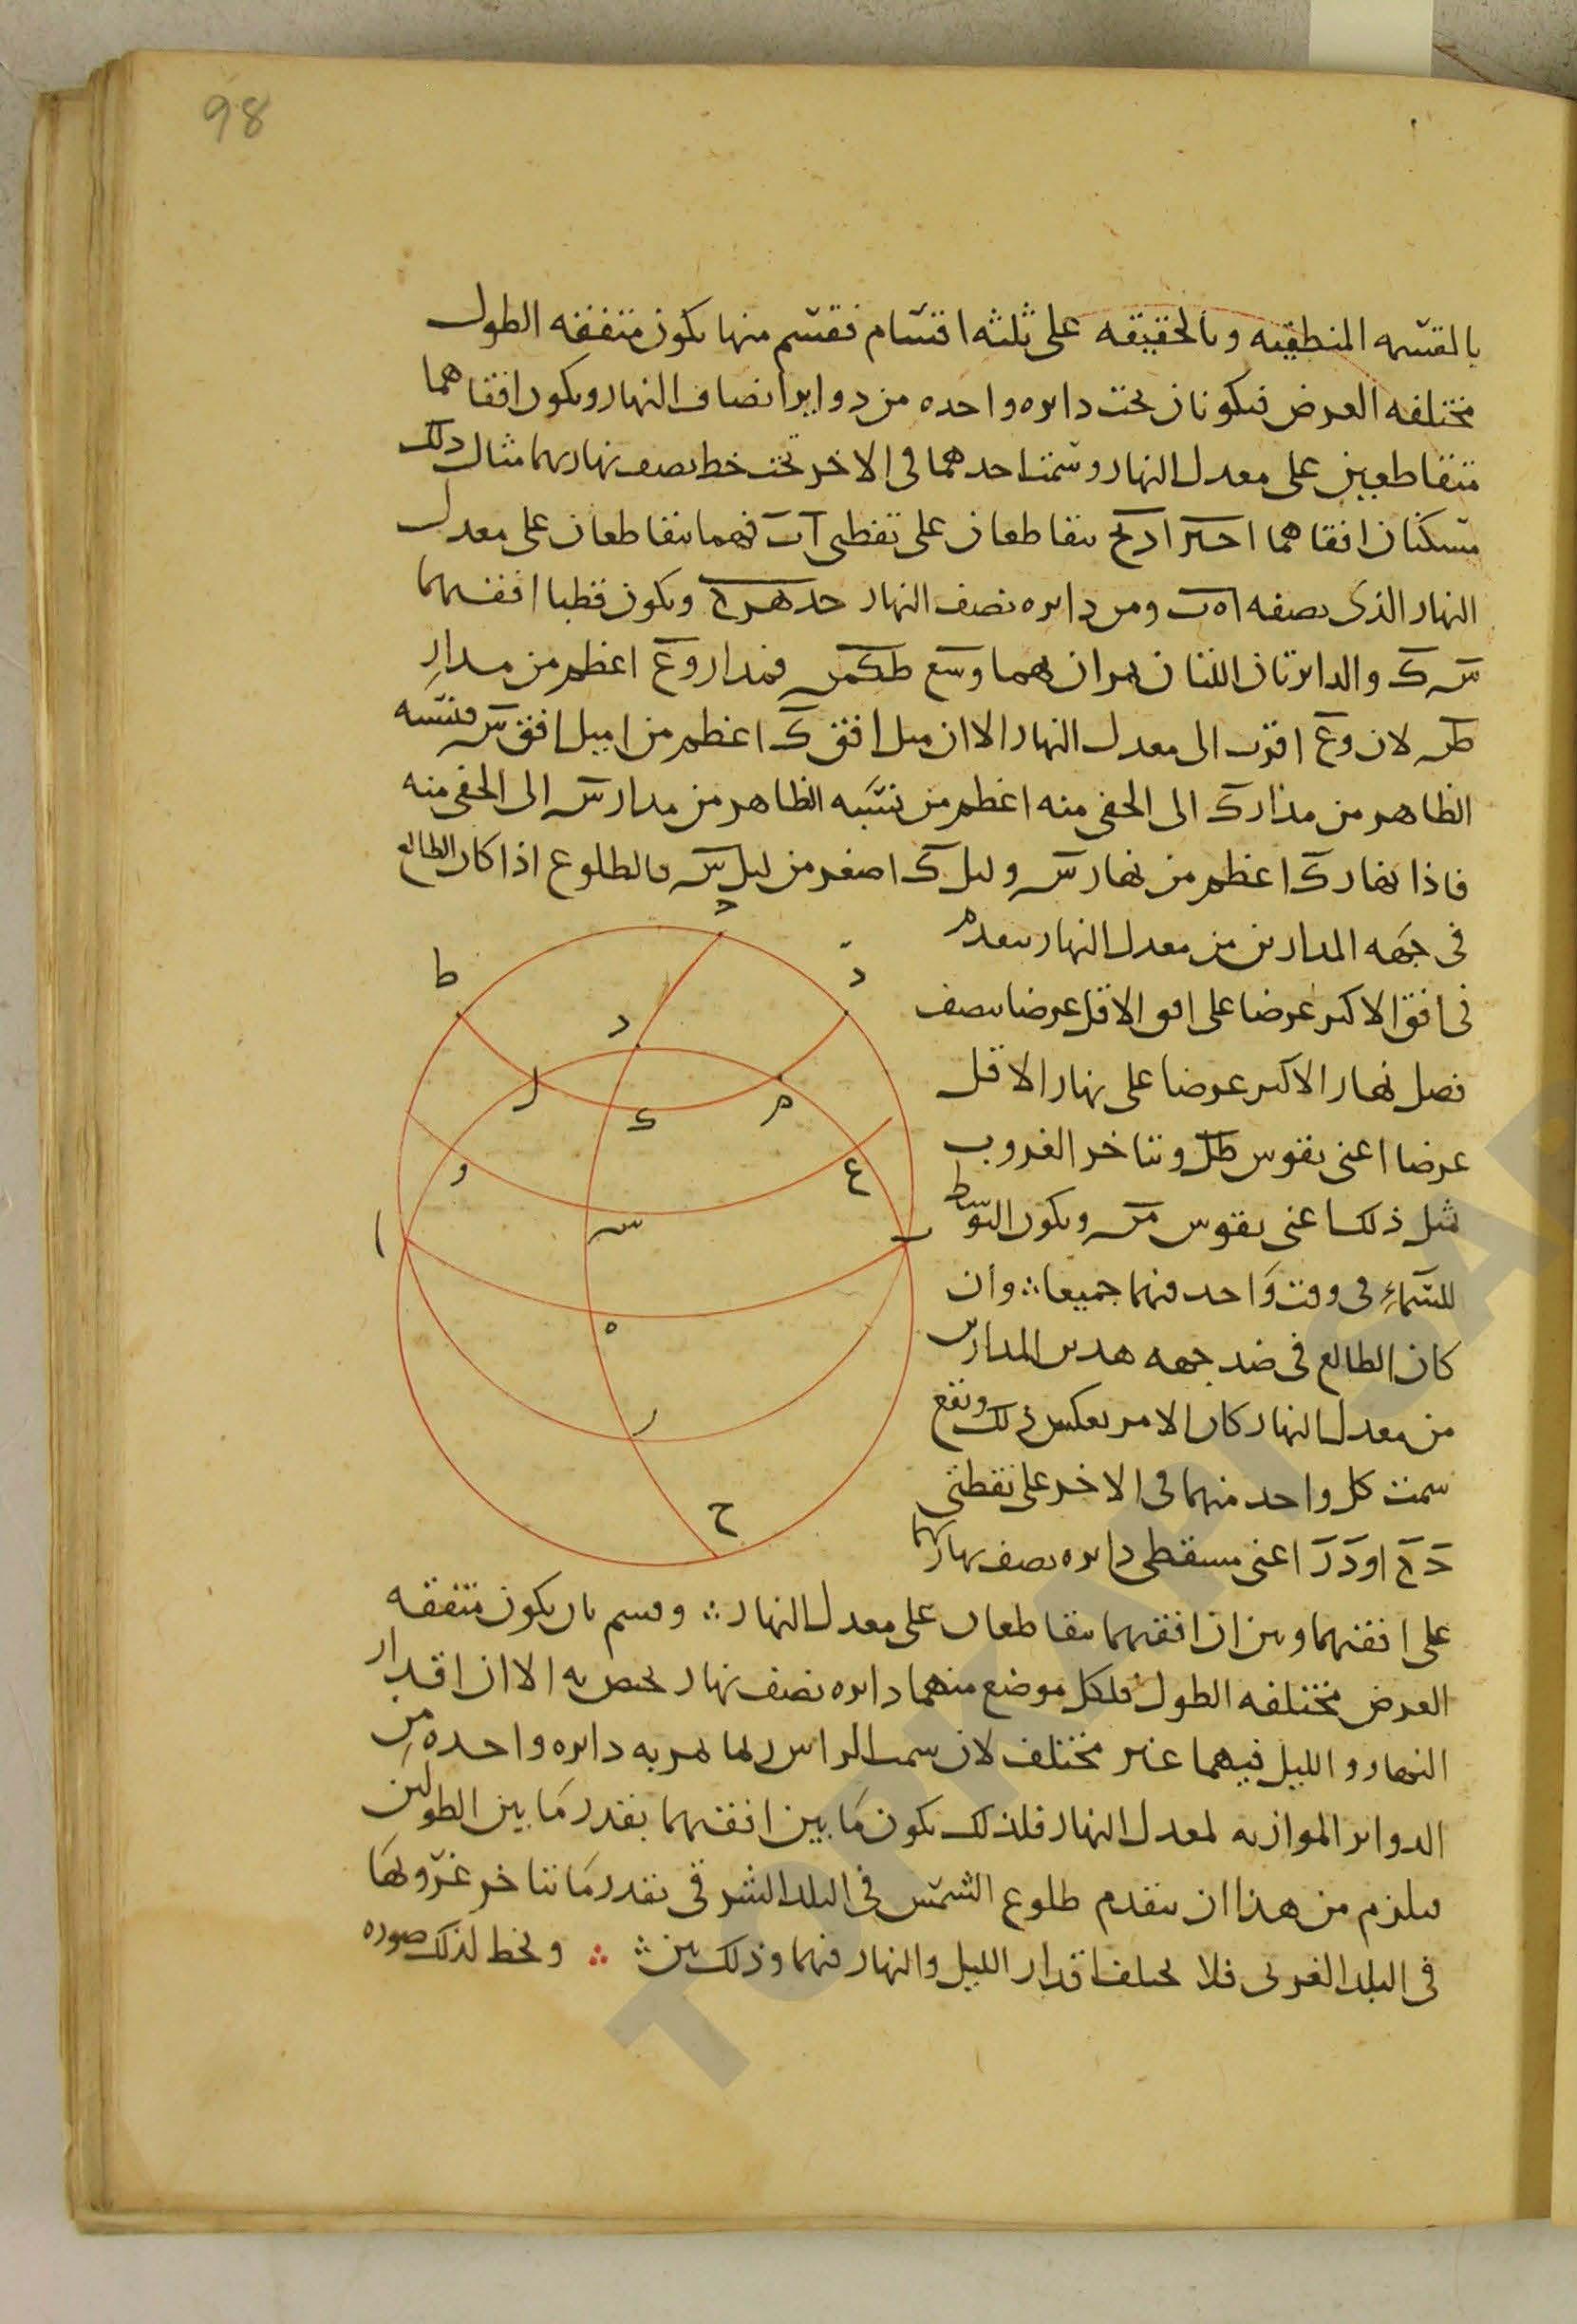 98
بالقسمه المنطقيه وبالحقيقه على ثلثه اقسام فقسم منها يكون متفقه الطول
مختلفه العرض فيكونان تحت دايره واحده من دواير انصاف النهار ويكون افقاهما
متقاطعين على معدل النهار وسمت احدهما فى الاخر تحت خط نصف نهاريهما مثال ذلك
مسكنان افقاهما يتقاطعان على نقطتى آ ب فهما يتقاطعان على معدل
النهار الذى نصفه اه ب ومن دايره نصف النهار ويكون قطبا افقيهما
س ك والدايرتان اللتان تمران بهما وسع طكمر فمدار وع اعظم من مدار
لان وع اقرب الى معدل النهار الا ان ميل افق ك اعظم من ميل افق س فنسبه
الظاهر من مدار ك الى الخفى منه اعظم من نسبه الظاهر من مدار س الى الخفى منه
فاذا نهار ك اعظم من نهار س وليل ك اصغر من ليل س فالطلوع اذا كان الطالع
فى جهه المدارين من معدل النهار يتقدم
فى افق الاكبر عرضا على افق الاقل عرضا بنصف
فصل نهار الاكبر عرضا على نهار الاقل
عرضا اعنى بقوس طل ويتاخر الغروب
مثل ذلك اعنى بقوس ويكون التوسط
للسماء فى وقت واحد فيهما جميعا ؞ وان
كان الطالع فى ضد جهه هدين المدارين
من معدل النهار كان الامر بعكس ذلك ويقع
سمت كل واحد منهما فى الاخر على نقطتى
اعنى مسقطى دايره نصف نهاريهما
على افقيهما وبين ان افقيهما يتقاطعان على معدل النهار ؞ وقسم بان يكون متفقه
العرض مختلفه الطول فلكل موضع منهما دايره نصف نهار تختص به الا ان اقدار
النهار والليل فيهما غير مختلف لان سمت الراس بهما تمر به دايره واحده من
الدواير الموازيه لمعدل النهار فلذلك يكون ما بين افقيهما بقدر ما بين الطولين
فيلزم من هذا ان يتقدم طلوع الشمس فى البلد الشرقى بقدر ما يتاخر غروبها
فى البلد الغربى فلا يختلف اقدار الليل والنهار فيهما وذلك بين ؞ ؞ ونخط لذلك صوره
د
ط
د
ل
ك
م
و
ع
س
ا
ب
ه
ر
ح
TOPKAPI SA